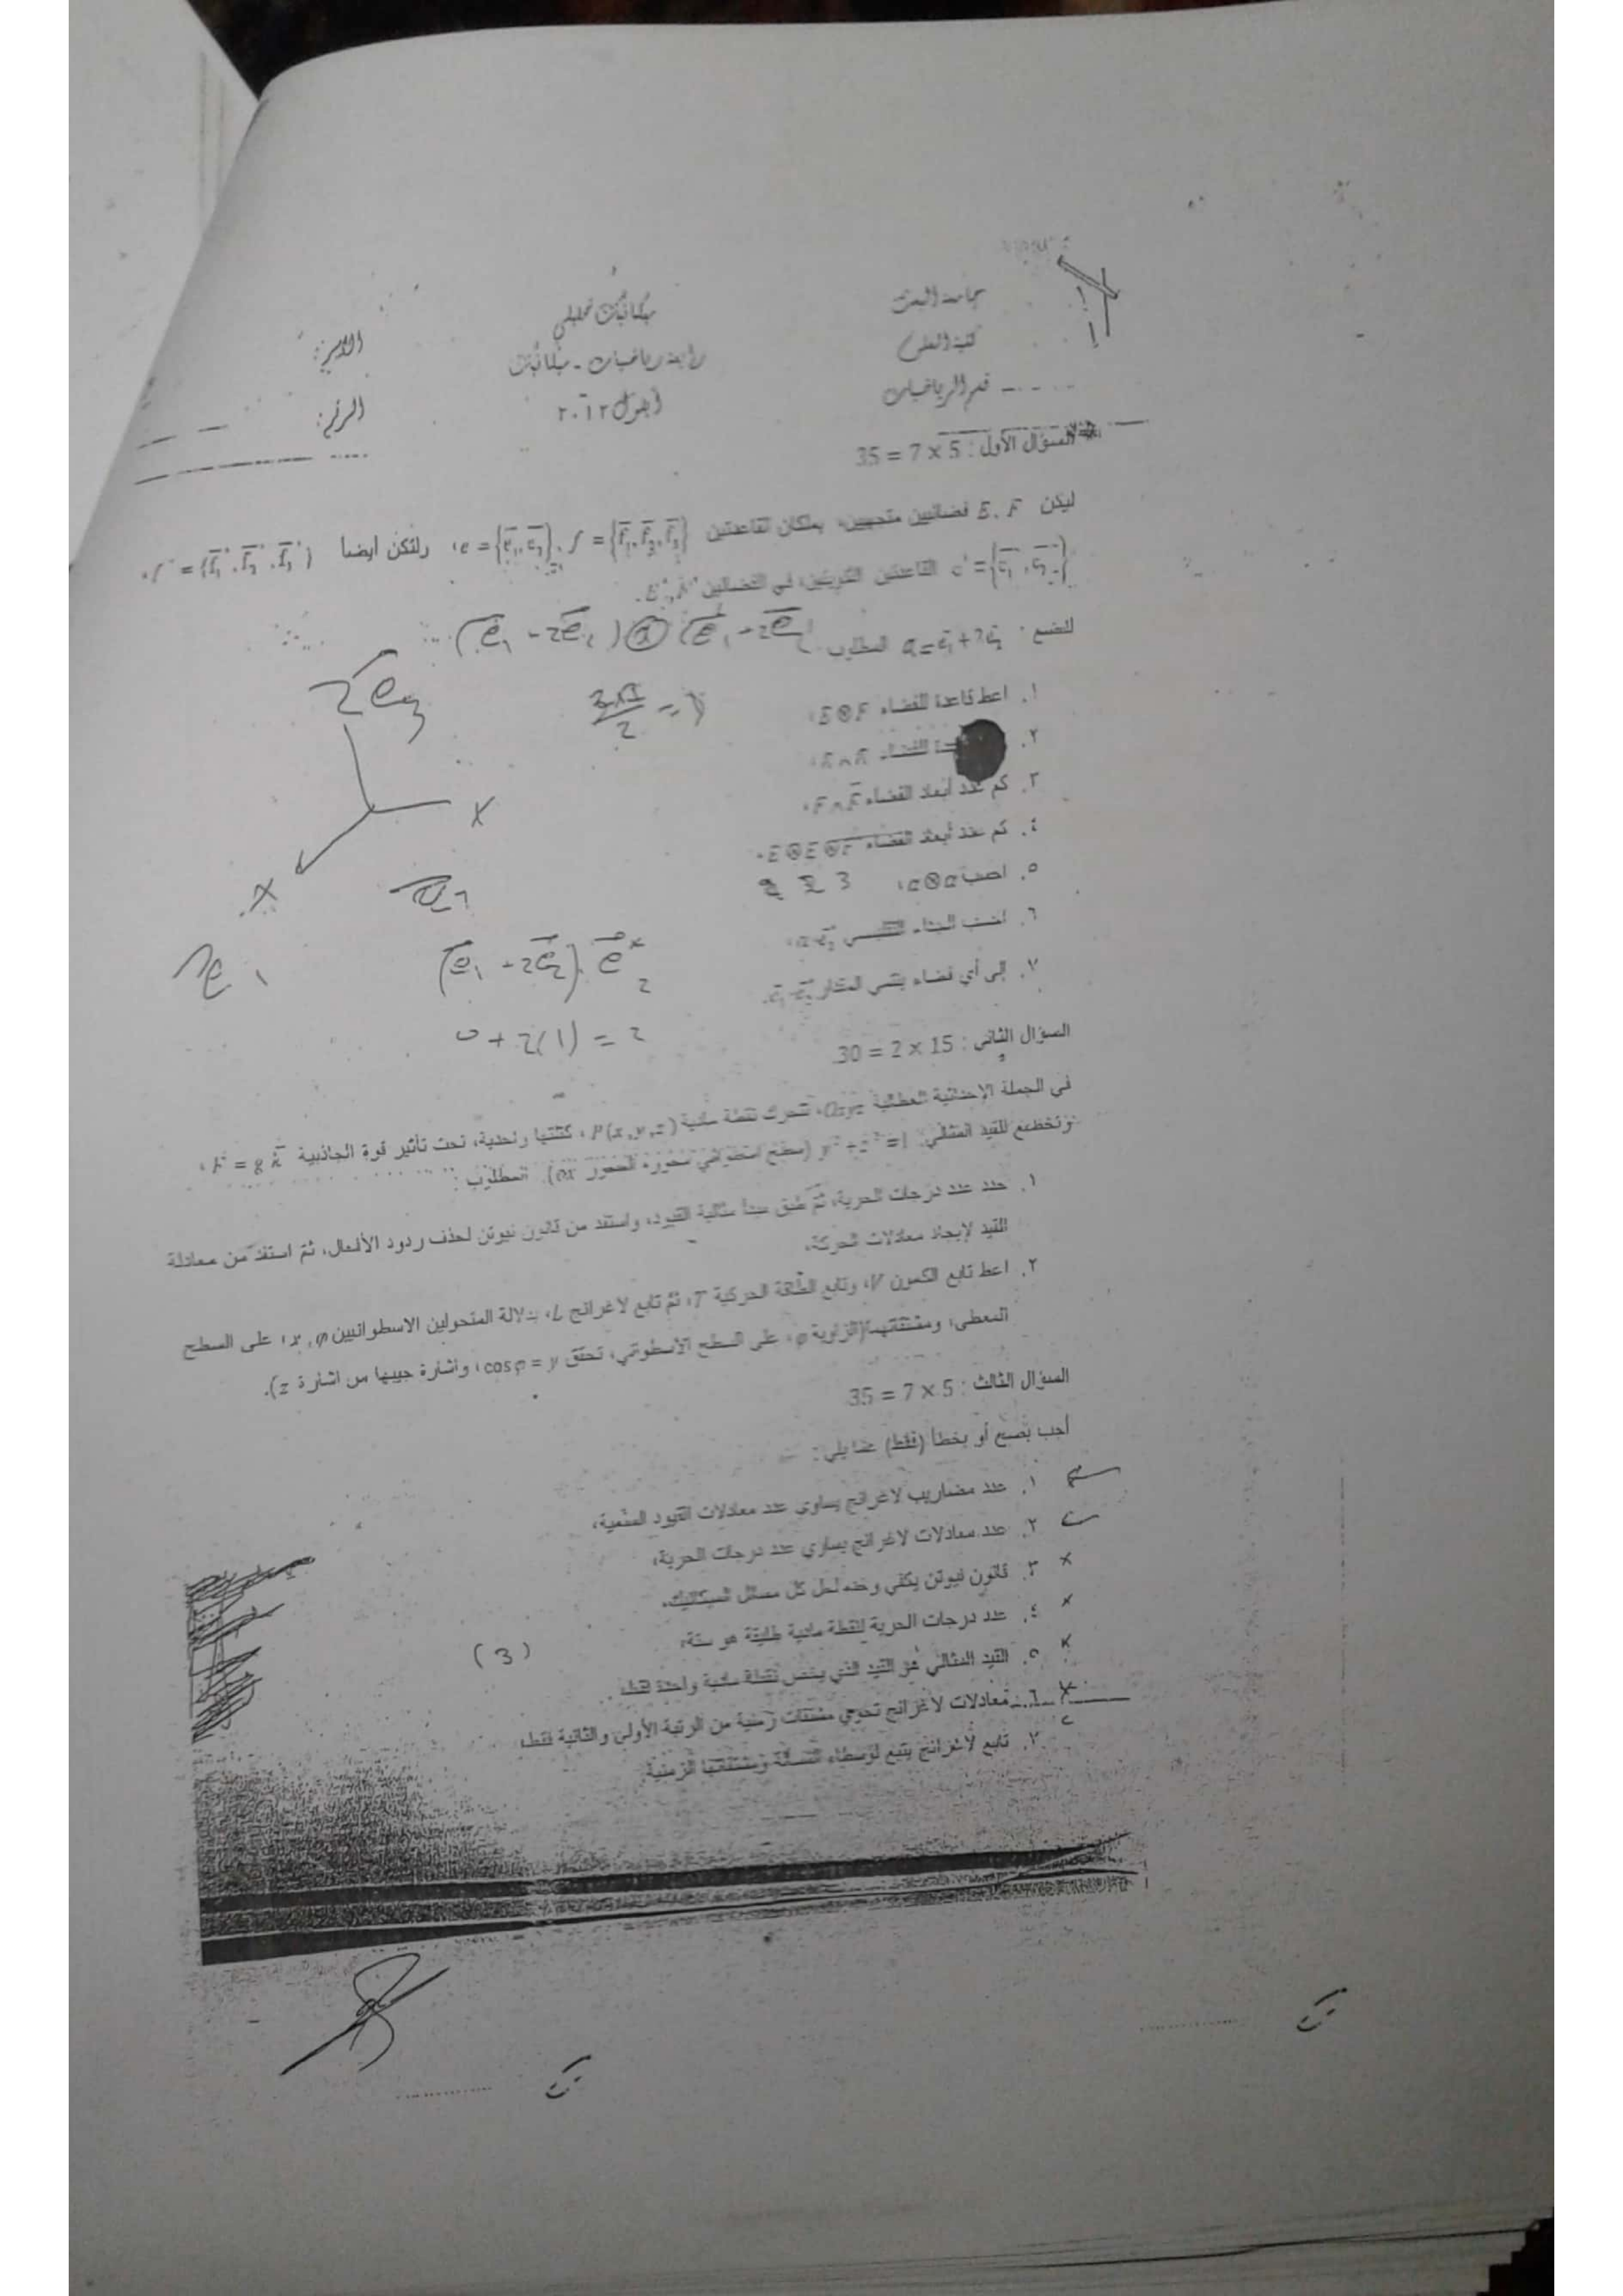 جامعة البعث
كلية العلوم
قسم الرياضيات
ميكانيك تحليلي
رابعة رياضيات - ميكانيك
أيلول ٢٠١٢
الاسم:
الرقم:
السؤال الأول : 5 × 7 = 35
ليكن E, F فضائيين متجهيين، يملكان القاعدتين e = {e₁, e₂}, f = {f₁, f₂, f₃}، ولتكن أيضا f* = {f₁*, f₂*, f₃*}،
e* = {e₁*, e₂*} القاعدتين الثنويتين، في الفضائين E*, F*.
لنضع a = e₁ + 2e₂ المطلوب
(e₁ + 2e₂) ⊗ (e₁ + 2e₂)
١. اعط قاعدة للفضاء E⊗F،
٢. للفضاء
٣. كم عدد أبعاد الفضاء F∧F،
٤. كم عدد أبعاد الفضاء E⊗E⊗F،
2 2 3
٥. احسب a⊗a،
٦. احسب الجداء
٧. إلى أي فضاء ينتمي المقدار
2e₃
x
x
(e₁ + 2e₂). e₂*
0 + 2(1) = 2
السؤال الثاني : 15 × 2 = 30
في الجملة الإحداثية العطالية Oxyz، تتحرك نقطة مادية P(x, y, z)، كتلتها واحدية، تحت تأثير قوة الجاذبية F = g k،
وتخضع للقيد المثالي: y² + z² = 1 (سطح اسطواني محوره المحور ox). المطلوب :
١. حدد عدد درجات الحرية، ثم طبق مبدأ مثالية القيود، واستفد من قانون نيوتن لحذف ردود الأفعال، ثم استفد من معادلة
القيد لإيجاد معادلات الحركة،
٢. اعط تابع الكمون V، وتابع الطاقة الحركية T، ثم تابع لاغرانج L، بدلالة المتحولين الاسطوانيين x, φ، على السطح
المعطى، ومشتقاتهما (الزاوية φ، على السطح الاسطواني، تحقق cos φ = y، واشارة جيبها من اشارة z).
السؤال الثالث : 5 × 7 = 35
أجب بصح أو بخطأ (فقط) عما يلي :
١. عدد مضاريب لاغرانج يساوي عدد معادلات القيود
٢. عدد معادلات لاغرانج يساوي عدد درجات الحرية،
٣. قانون نيوتن يكفي وحده لحل كل مسائل الميكانيك،
٤. عدد درجات الحرية لنقطة مادية طليقة هو ستة،
(3)
٥. القيد المثالي هو القيد الذي يخص نقطة مادية واحدة فقط،
٦. معادلات لاغرانج تحوي مشتقات زمنية من الرتبة الأولى والثانية فقط،
٧. تابع لاغرانج يتبع لوسطاء المسألة ومشتقاتها الزمنية